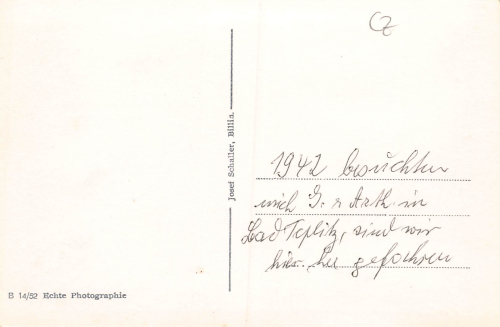 CZ
1942 besuchten
mich G. u Arth. in
Bad Teplitz, sind wir
hier. her gefahren
Josef Schaller, Billin.
B 14/52 Echte Photographie